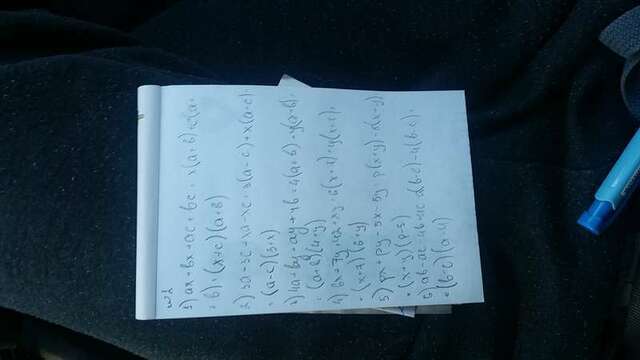 №2
1) ax + bx + ac + bc = x(a+b) + c(a+
+b) = (x+c)(a+b)
2) 3a - 3c + xa - xc = 3(a-c) + x(a-c) =
= (a-c)(3+x)
3) 4a + by + ay + 4b = 4(a+b) + y(a+b) =
= (a+b)(4+y)
4) 6x + 7y + 42 + xy = 6(x+7) + y(x+7) =
= (x+7)(6+y)
5) px + py - 5x - 5y = p(x+y) - 5(x+y) =
= (x+y)(p-5)
6) ab - ac - 4b + 4c = a(b-c) - 4(b-c) =
= (b-c)(a-4)